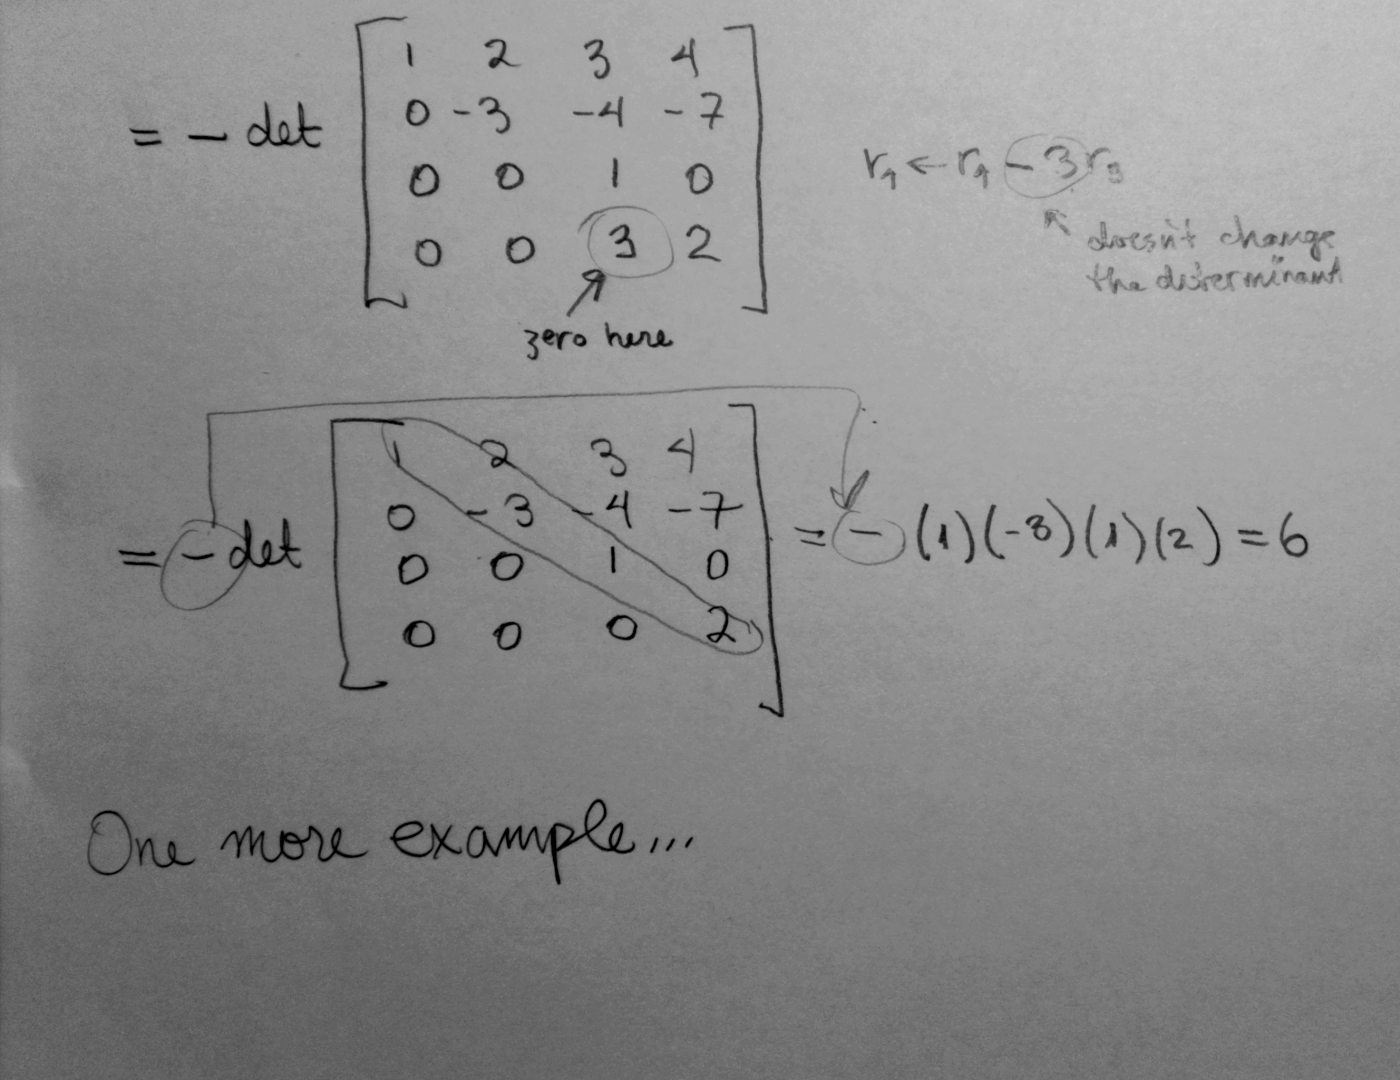 1 2 3 4
0 -3 -4 -7
= - det
0 0 1 0
r₄ ← r₄ - 3 r₃
0 0 3 2
doesn't change
the determinant
zero here
1 2 3 4
0 -3 -4 -7
= - det = - (1)(-3)(1)(2) = 6
0 0 1 0
0 0 0 2
One more example...